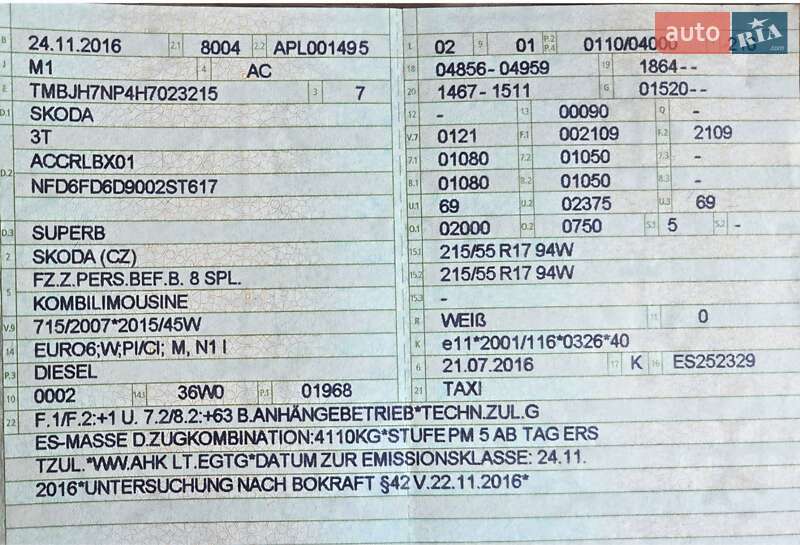 B 24.11.2016 2.1 8004 2.2 APL001495
J M1 4 AC
E TMBJH7NP4H7023215 3 7
D.1 SKODA
3T
D.2 ACCRLBX01
NFD6FD6D9002ST617
D.3 SUPERB
2 SKODA (CZ)
5 FZ.Z.PERS.BEF.B. 8 SPL.
KOMBILIMOUSINE
V.9 715/2007*2015/45W
14 EURO6;W;PI/CI; M, N1 I
P.3 DIESEL
10 0002 14.1 36W0 P.1 01968
L 02 9 01 P.2 P.4 0110/04000
18 04856-04959 19 1864--
20 1467-1511 G 01520--
12 - 13 00090 Q -
V.7 0121 F.1 002109 F.2 2109
7.1 01080 7.2 01050 7.3 -
8.1 01080 8.2 01050 8.3 -
U.1 69 U.2 02375 U.3 69
O.1 02000 O.2 0750 S.1 5 S.2 -
15.1 215/55 R17 94W
15.2 215/55 R17 94W
15.3 -
R WEIß 11 0
K e11*2001/116*0326*40
6 21.07.2016 17 K 16 ES252329
21 TAXI
22 F.1/F.2:+1 U. 7.2/8.2:+63 B.ANHÄNGEBETRIEB*TECHN.ZUL.G
ES-MASSE D.ZUGKOMBINATION:4110KG*STUFE PM 5 AB TAG ERS
TZUL.*WW.AHK LT.EGTG*DATUM ZUR EMISSIONSKLASSE: 24.11.
2016*UNTERSUCHUNG NACH BOKRAFT §42 V.22.11.2016*
auto RIA .com